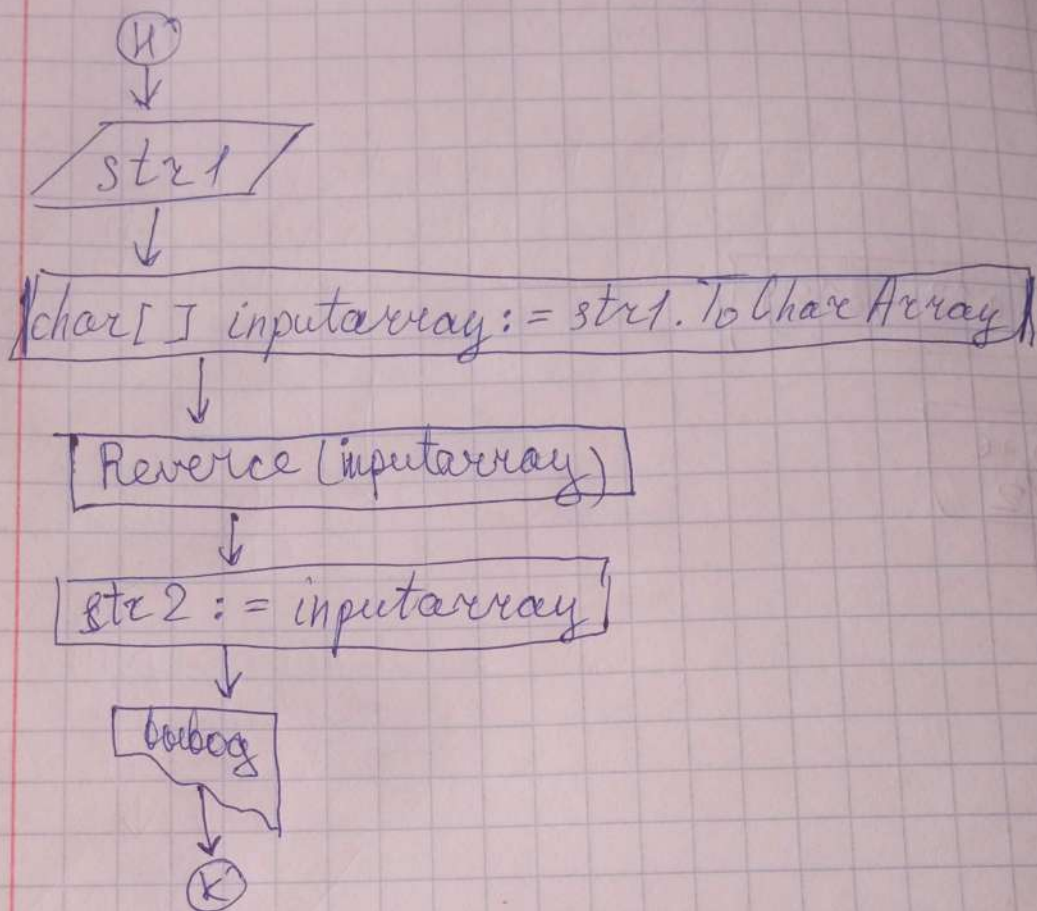 Н
str1
char[] inputarray:= str1.ToCharArray
Reverce (inputarray)
str2 := inputarray
вывод
К